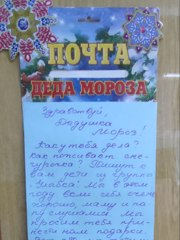 ПОЧТА
ДЕДА МОРОЗА
Здравствуй,
Дедушка
Мороз!
Как у тебя дела?
Как поживает Сне-
гурочка? Пишут
вам дети из группы
Мы в этом
году вели себя очень
хорошо, маму и па-
пу слушались. Мы
просим тебя при-
нести нам подарки.